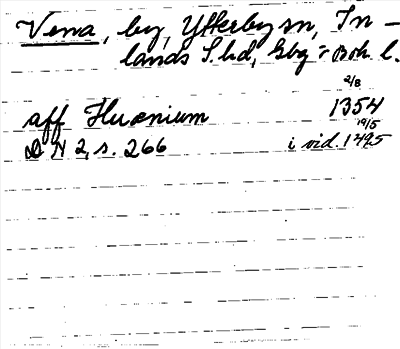 Vena, by, Ytterby sn, In-
lands S. hd, Gbg o Boh l.
2/8
aff Huænium 1354
19/5
D N 2, s. 266 i vid. 1495